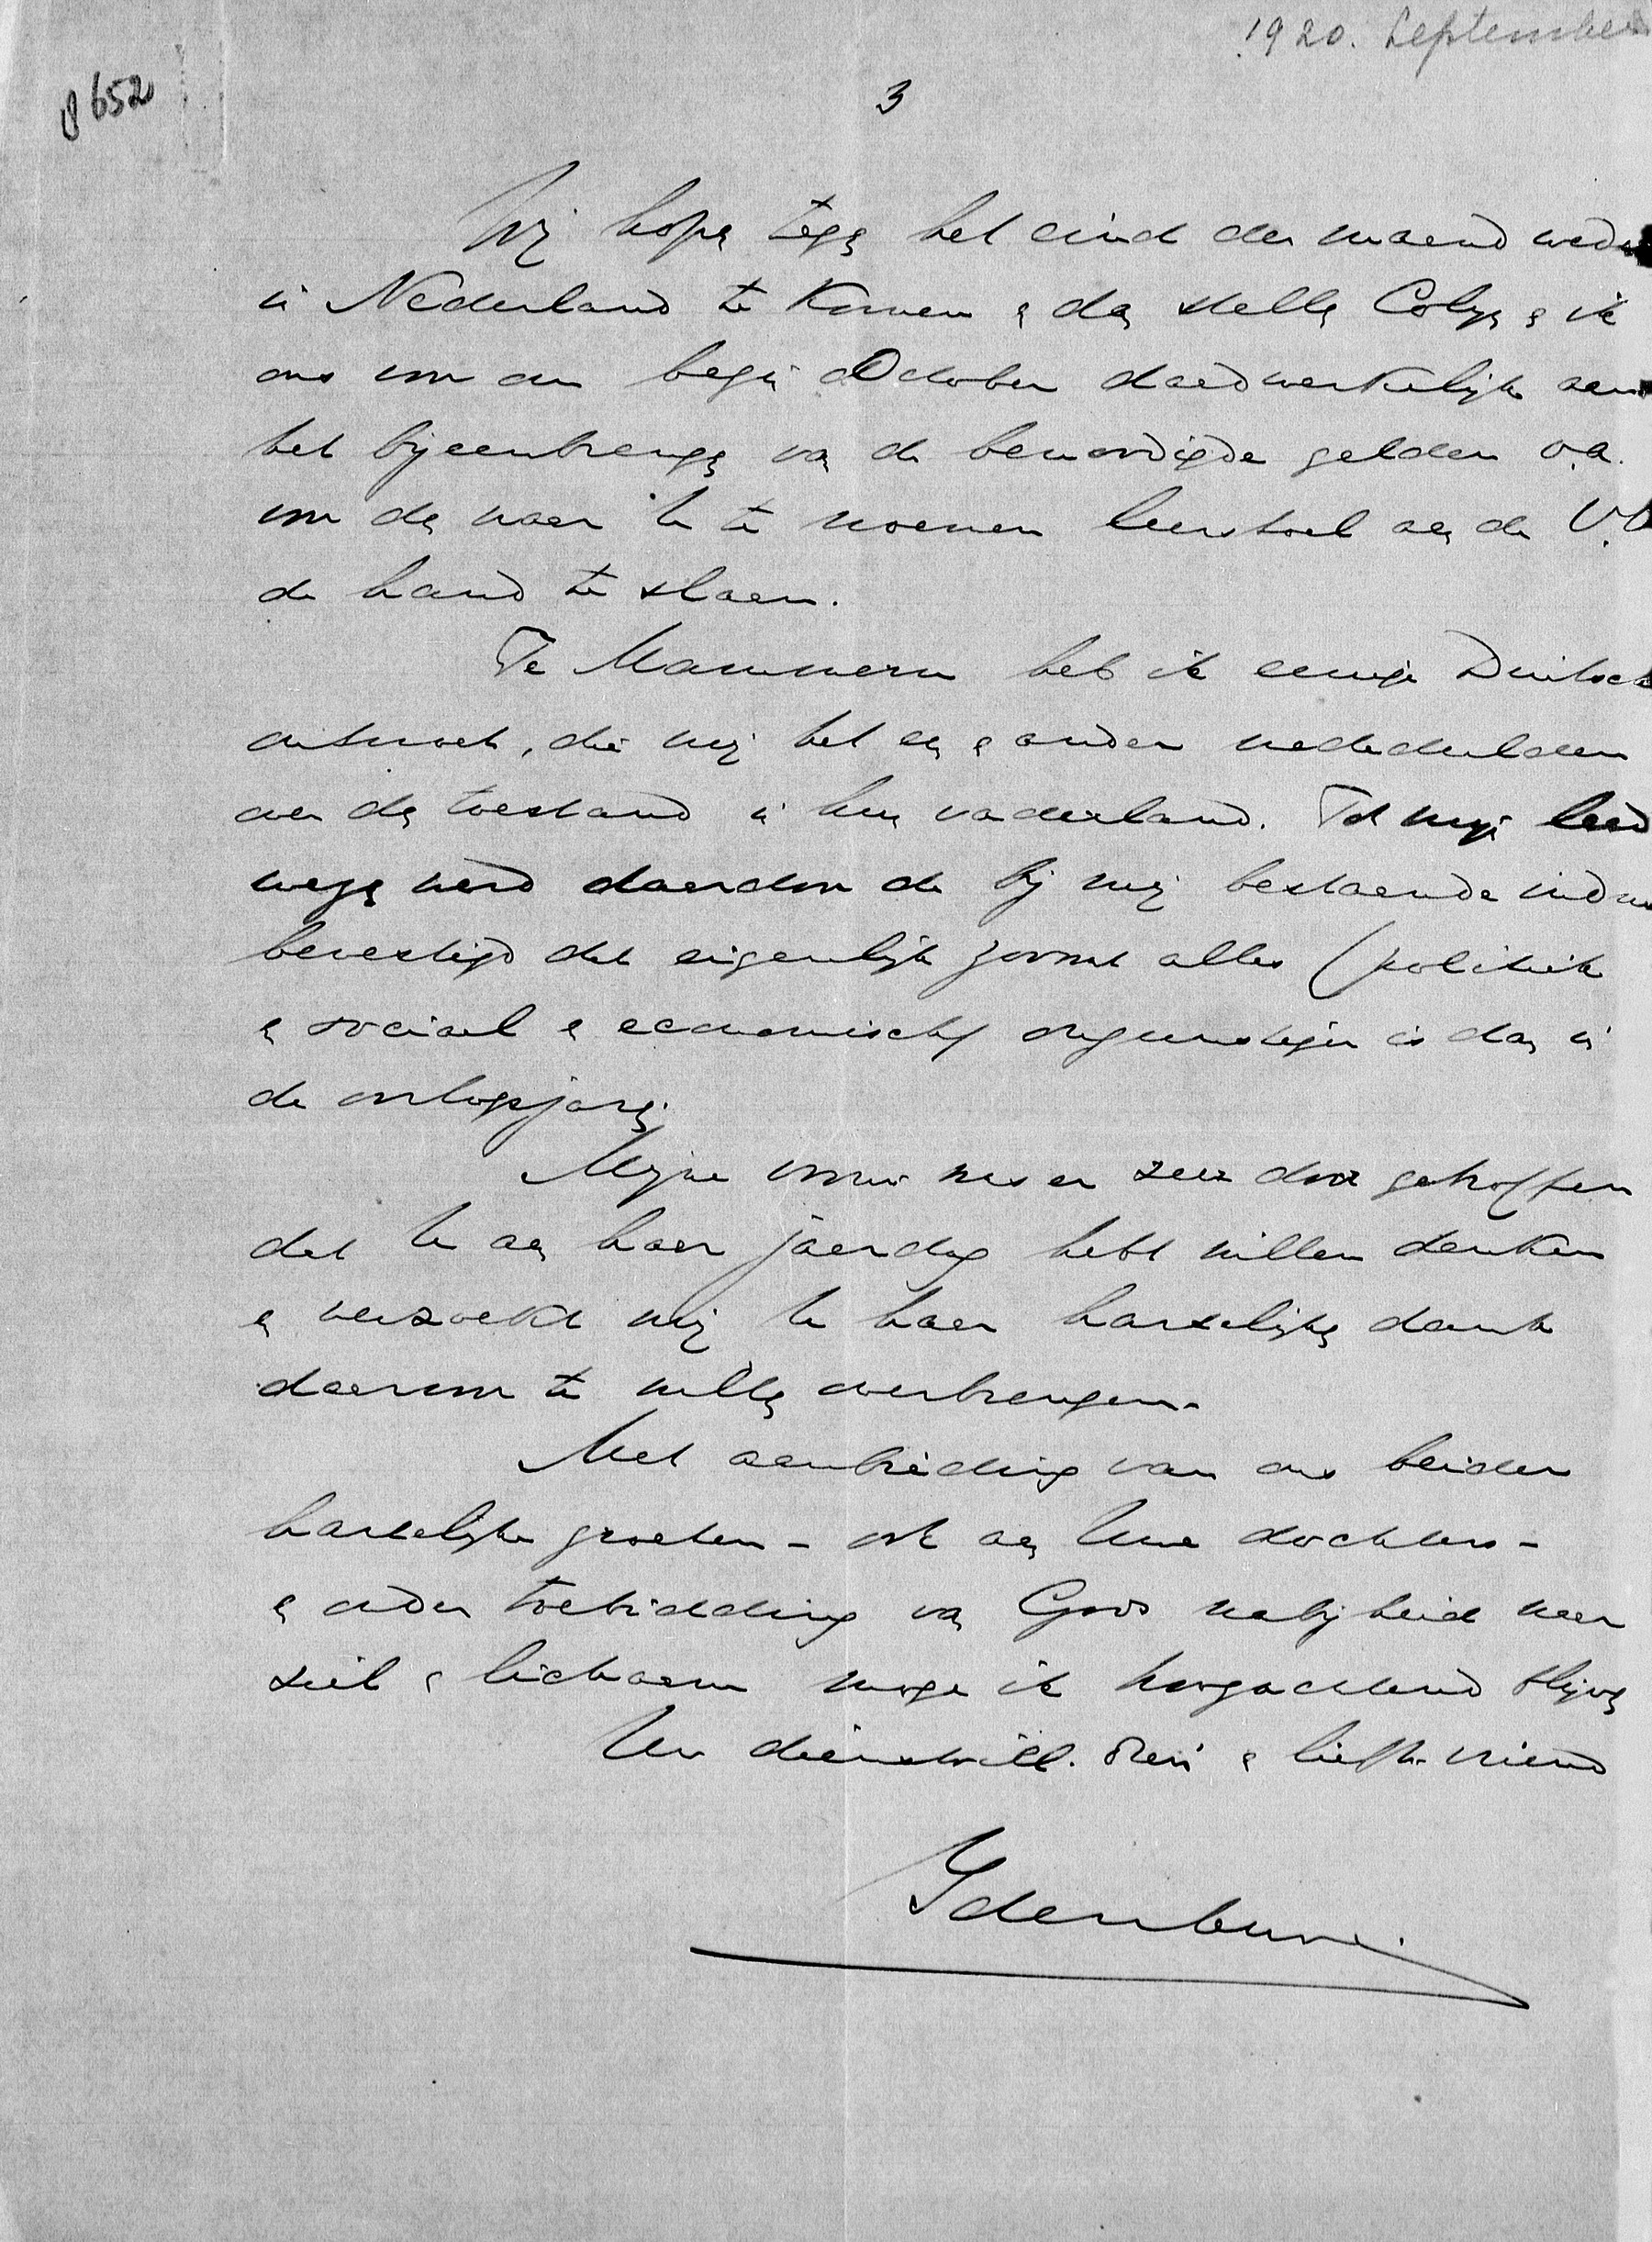 1920. September
8652
3
Wij hopen tegen het eind der maand weder
in Nederland te komen en dan stellen Colijn en ik
ons voor om begin October daadwerkelijk aan
het bijeenbrengen van de benoodigde gelden o.a.
voor den naar U te noemen leerstoel aan de V.U
de hand te slaan.
Te Mammern heb ik eenige Duitsch
ontmoet, die mij het een en ander mededeelden
over den toestand in hun vaderland. Tot mijn leed
wezen werd daardoor de bij mij bestaande indruk
bevestigd dat eigenlijk zoowat alles (politiek
en sociaal en economisch) ongunstiger is dan in
de oorlogsjaren.
Mijne vrouw was er zeer door getroffen
dat U aan haar jaardag hebt willen denken
en verzoekt mij U haar hartelijken dank
daarvoor te willen overbrengen.
Met aanbieding van ons beider
hartelijke groeten - ook aan Uwe dochters -
en onder toebidding van Gods nabijheid naar
ziel en lichaam moge ik hoogachtend blijven
Uw dienstwill. en liefh. vriend
Idenburg